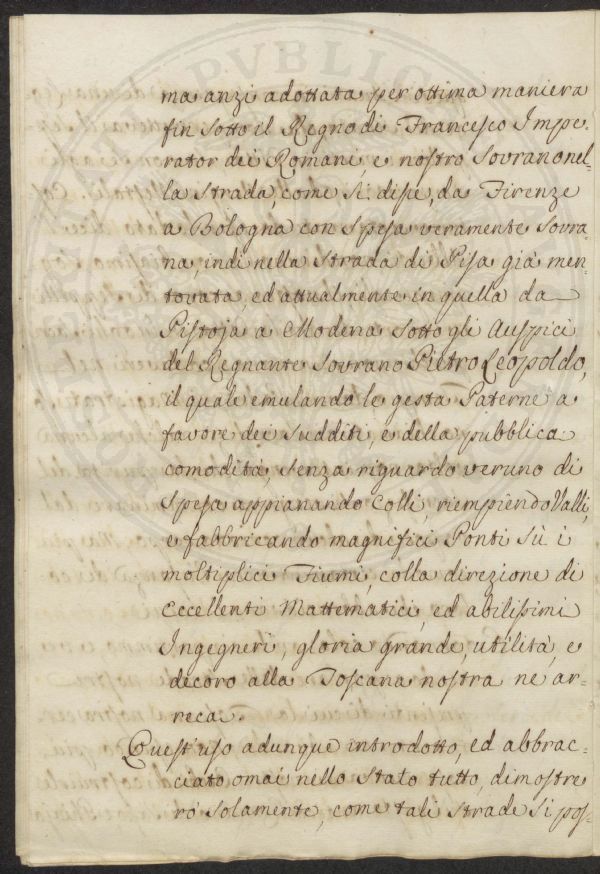 ma anzi adottata per ottima maniera
fin sotto il Regno di Francesco Impe-
rator dei Romani, e nostro Sovrano nel-
la Strada, come si disse, da Firenze
a Bologna con spesa veramente Sovra-
na, indi nella Strada di Pisa già men-
tovata, ed attualmente in quella da
Pistoja a Modena sotto gli Auspici
del Regnante Sovrano Pietro Leopoldo,
il quale emulando le gesta Paterne a
favore dei Sudditi, e della pubblica
comodità, senza riguardo veruno di
spesa appianando Colli, riempiendo Valli,
e fabbricando magnifici Ponti sù i
moltiplici Fiumi, colla direzione di
Eccellenti Mattematici, ed abilissimi
Ingegneri, gloria grande, utilità, e
decoro alla Toscana nostra ne ar-
reca.
Quest'uso adunque introdotto, ed abbrac-
ciato omai nello Stato tutto, dimostre
rò solamente, come tali strade si pos-